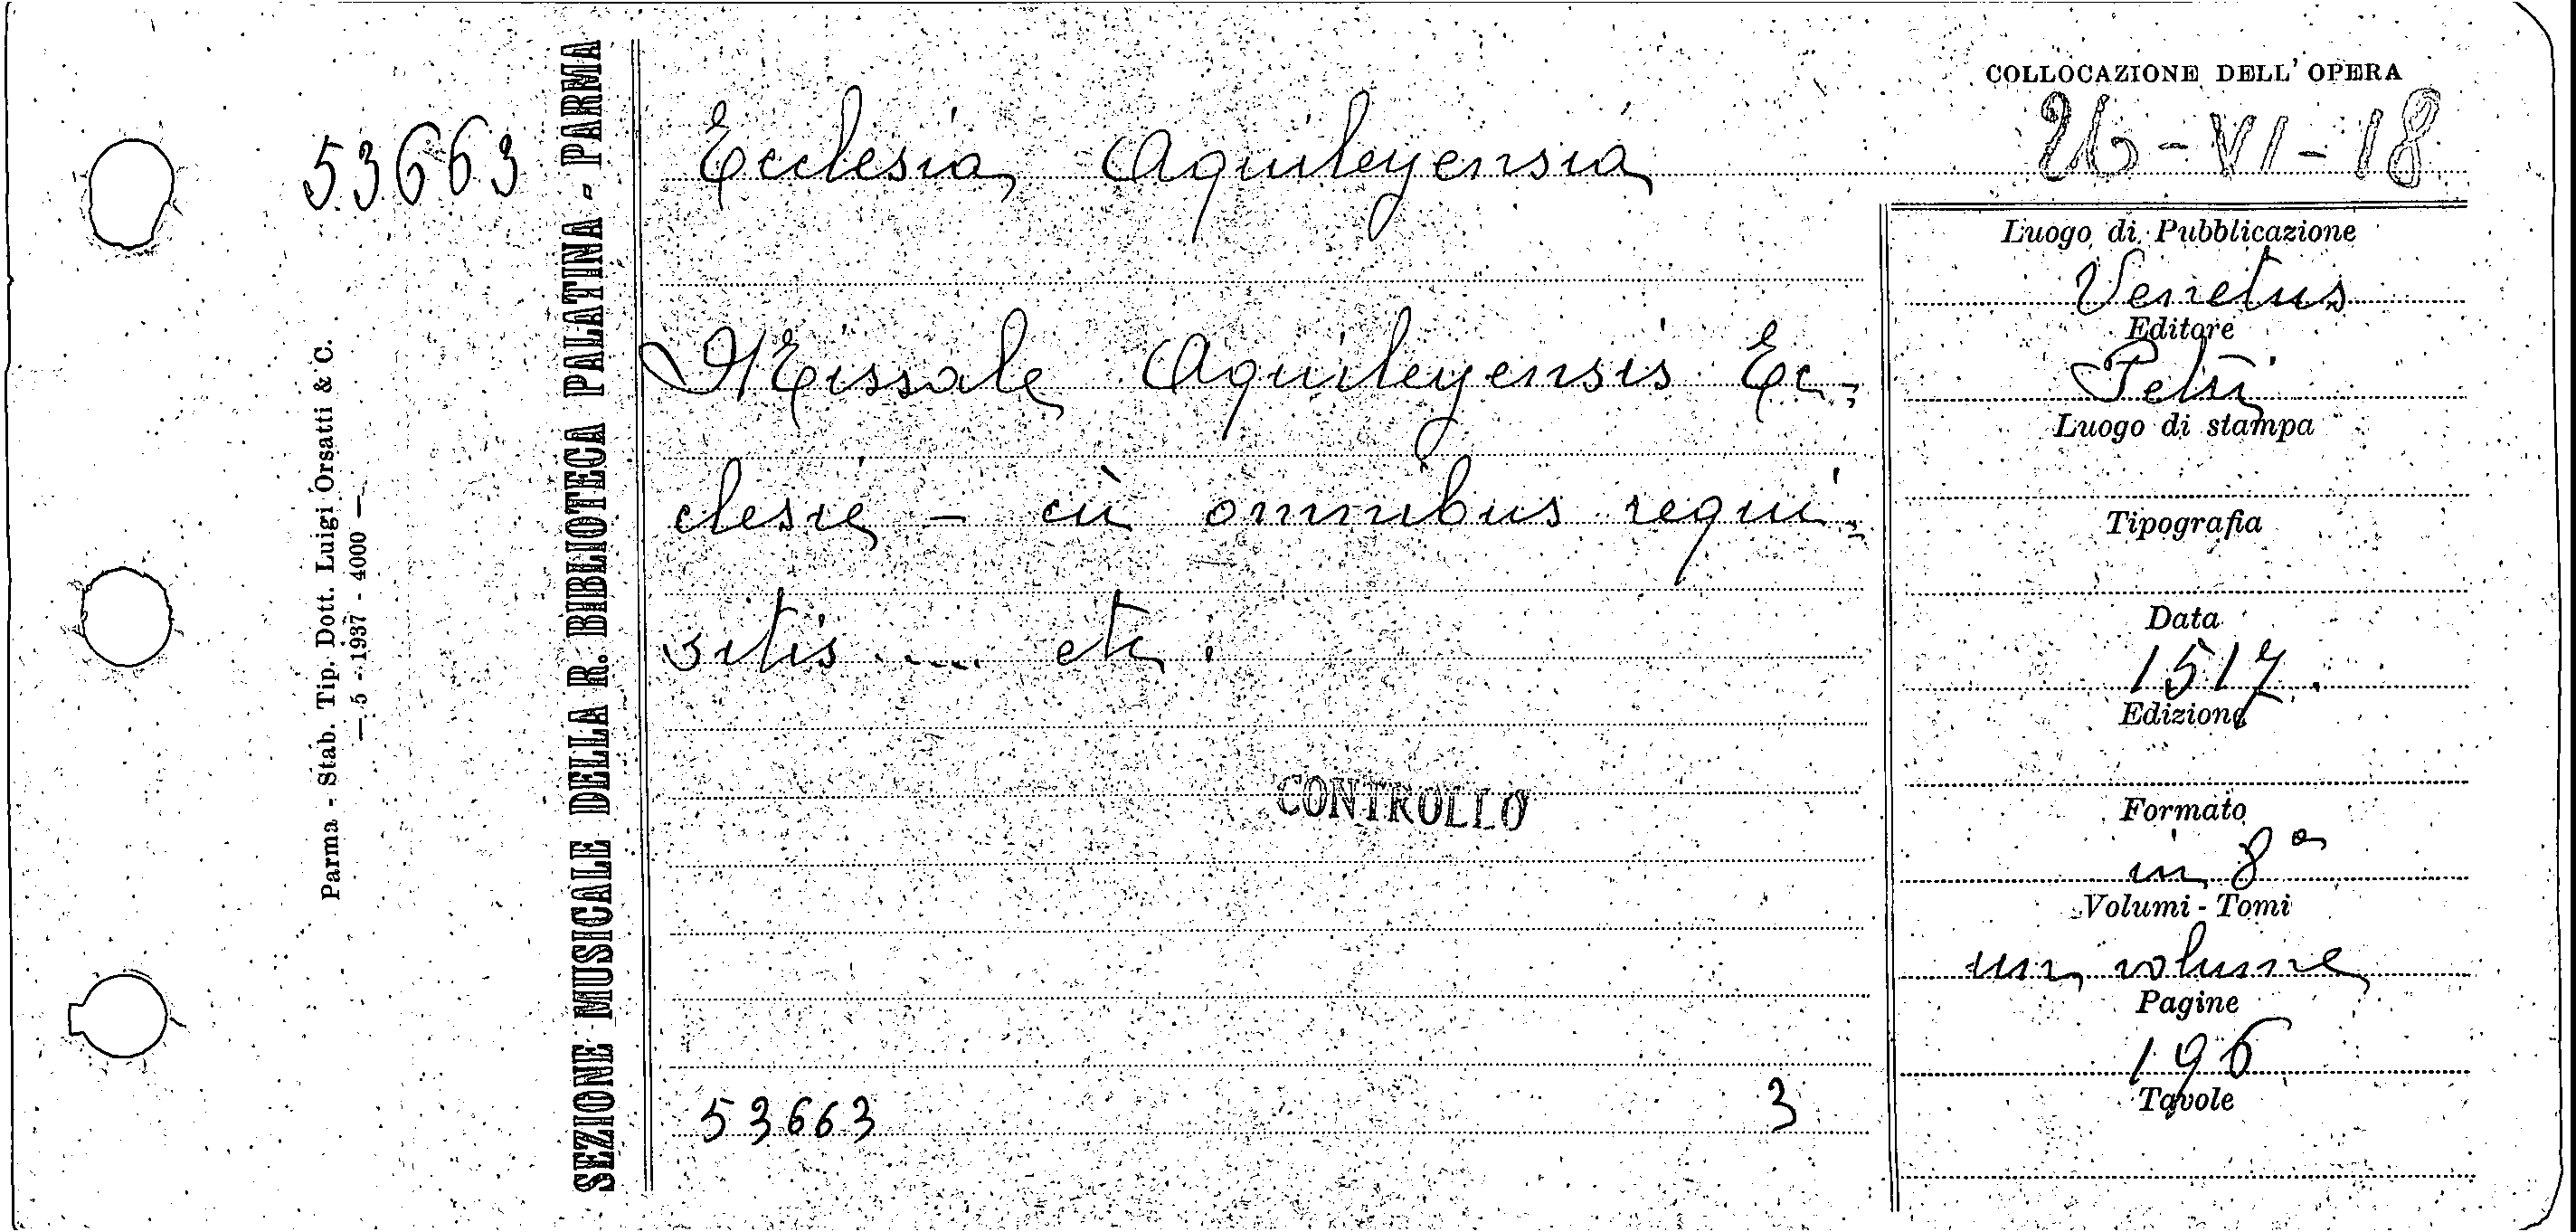 COLLOCAZIONE DELL' OPERA
26-VI-18
53663
Parma - Stab. Tip. Dott. Luigi Orsatti & C.
— 5 - 1937 - 4000 —
SEZIONE MUSICALE DELLA R. BIBLIOTECA PALATINA - PARMA
Ecclesia Aquileyensia
Missale Aquileyensis Ec-
clesie - cū omnibus requi-
sitis .... etc.
CONTROLLO
53663 3
Luogo di Pubblicazione
Venetus
Editore
Petri
Luogo di stampa
Tipografia
Data
1517.
Edizione
Formato
in 8º
Volumi - Tomi
un volume
Pagine
196
Tavole